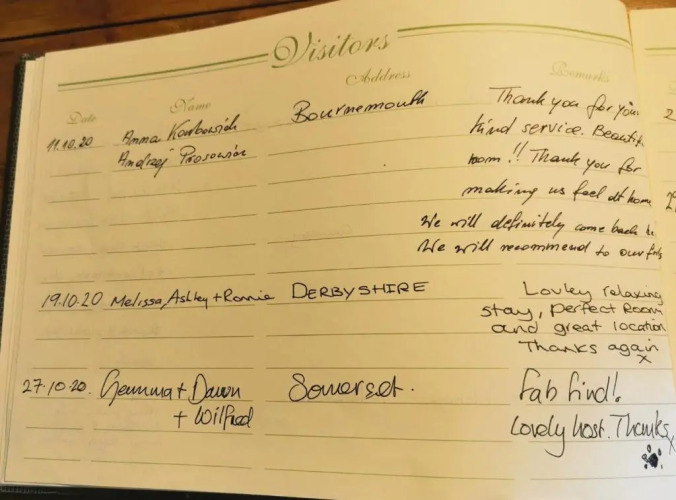 Visitors
Date Name Address Remarks
11.10.20 Anna Bournemouth Thank you for your
Andrzej kind service.
room!! Thank you for
making us feel at home
We will definitely come back
We will recommend to our
19.10.20 Melissa, Ashley + Ronnie DERBYSHIRE Lovley relaxing
stay, perfect Room
and great location
Thanks again
x
27.10.20. Gemma + Dawn Somerset. Fab find!
+ Wilfred Lovely host. Thanks x
2